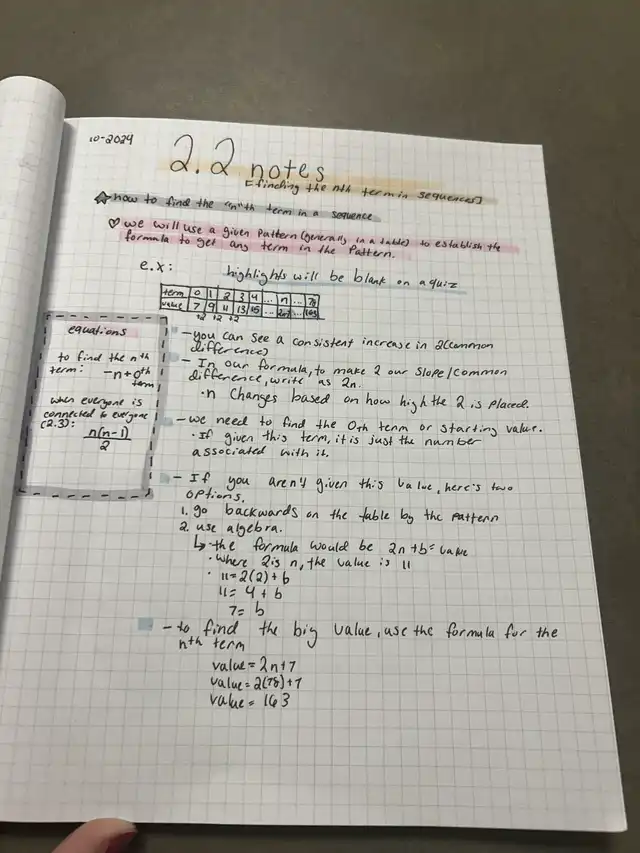 10-2024
2.2 notes
[finding the nth term in sequences]
☆ how to find the "n"th term in a sequence
♡ we will use a given pattern (generally in a table) to establish the
formula to get any term in the pattern.
e.x: highlights will be blank on a quiz
term 0 1 2 3 4 ... n ... 78
value 7 9 11 13 15 ... 2n+7 ... 163
+2 +2 +2
equations
to find the nth
term: -n+0th
term
when everyone is
connected to everyone
(2.3): n(n-1)
2
- you can see a consistent increase in 2(common
difference)
- In our formula, to make 2 our slope/common
difference, write as 2n.
· n changes based on how high the 2 is placed.
- we need to find the 0th term or starting value.
· If given this term, it is just the number
associated with it.
- If you aren't given this value, here's two
options.
1. go backwards on the table by the pattern
2. use algebra.
↳ the formula would be 2n+b=value
· where 2 is n, the value is 11
· 11=2(2)+b
11= 4+b
7= b
- to find the big value, use the formula for the
nth term
value=2n+7
value=2(78)+7
value= 163